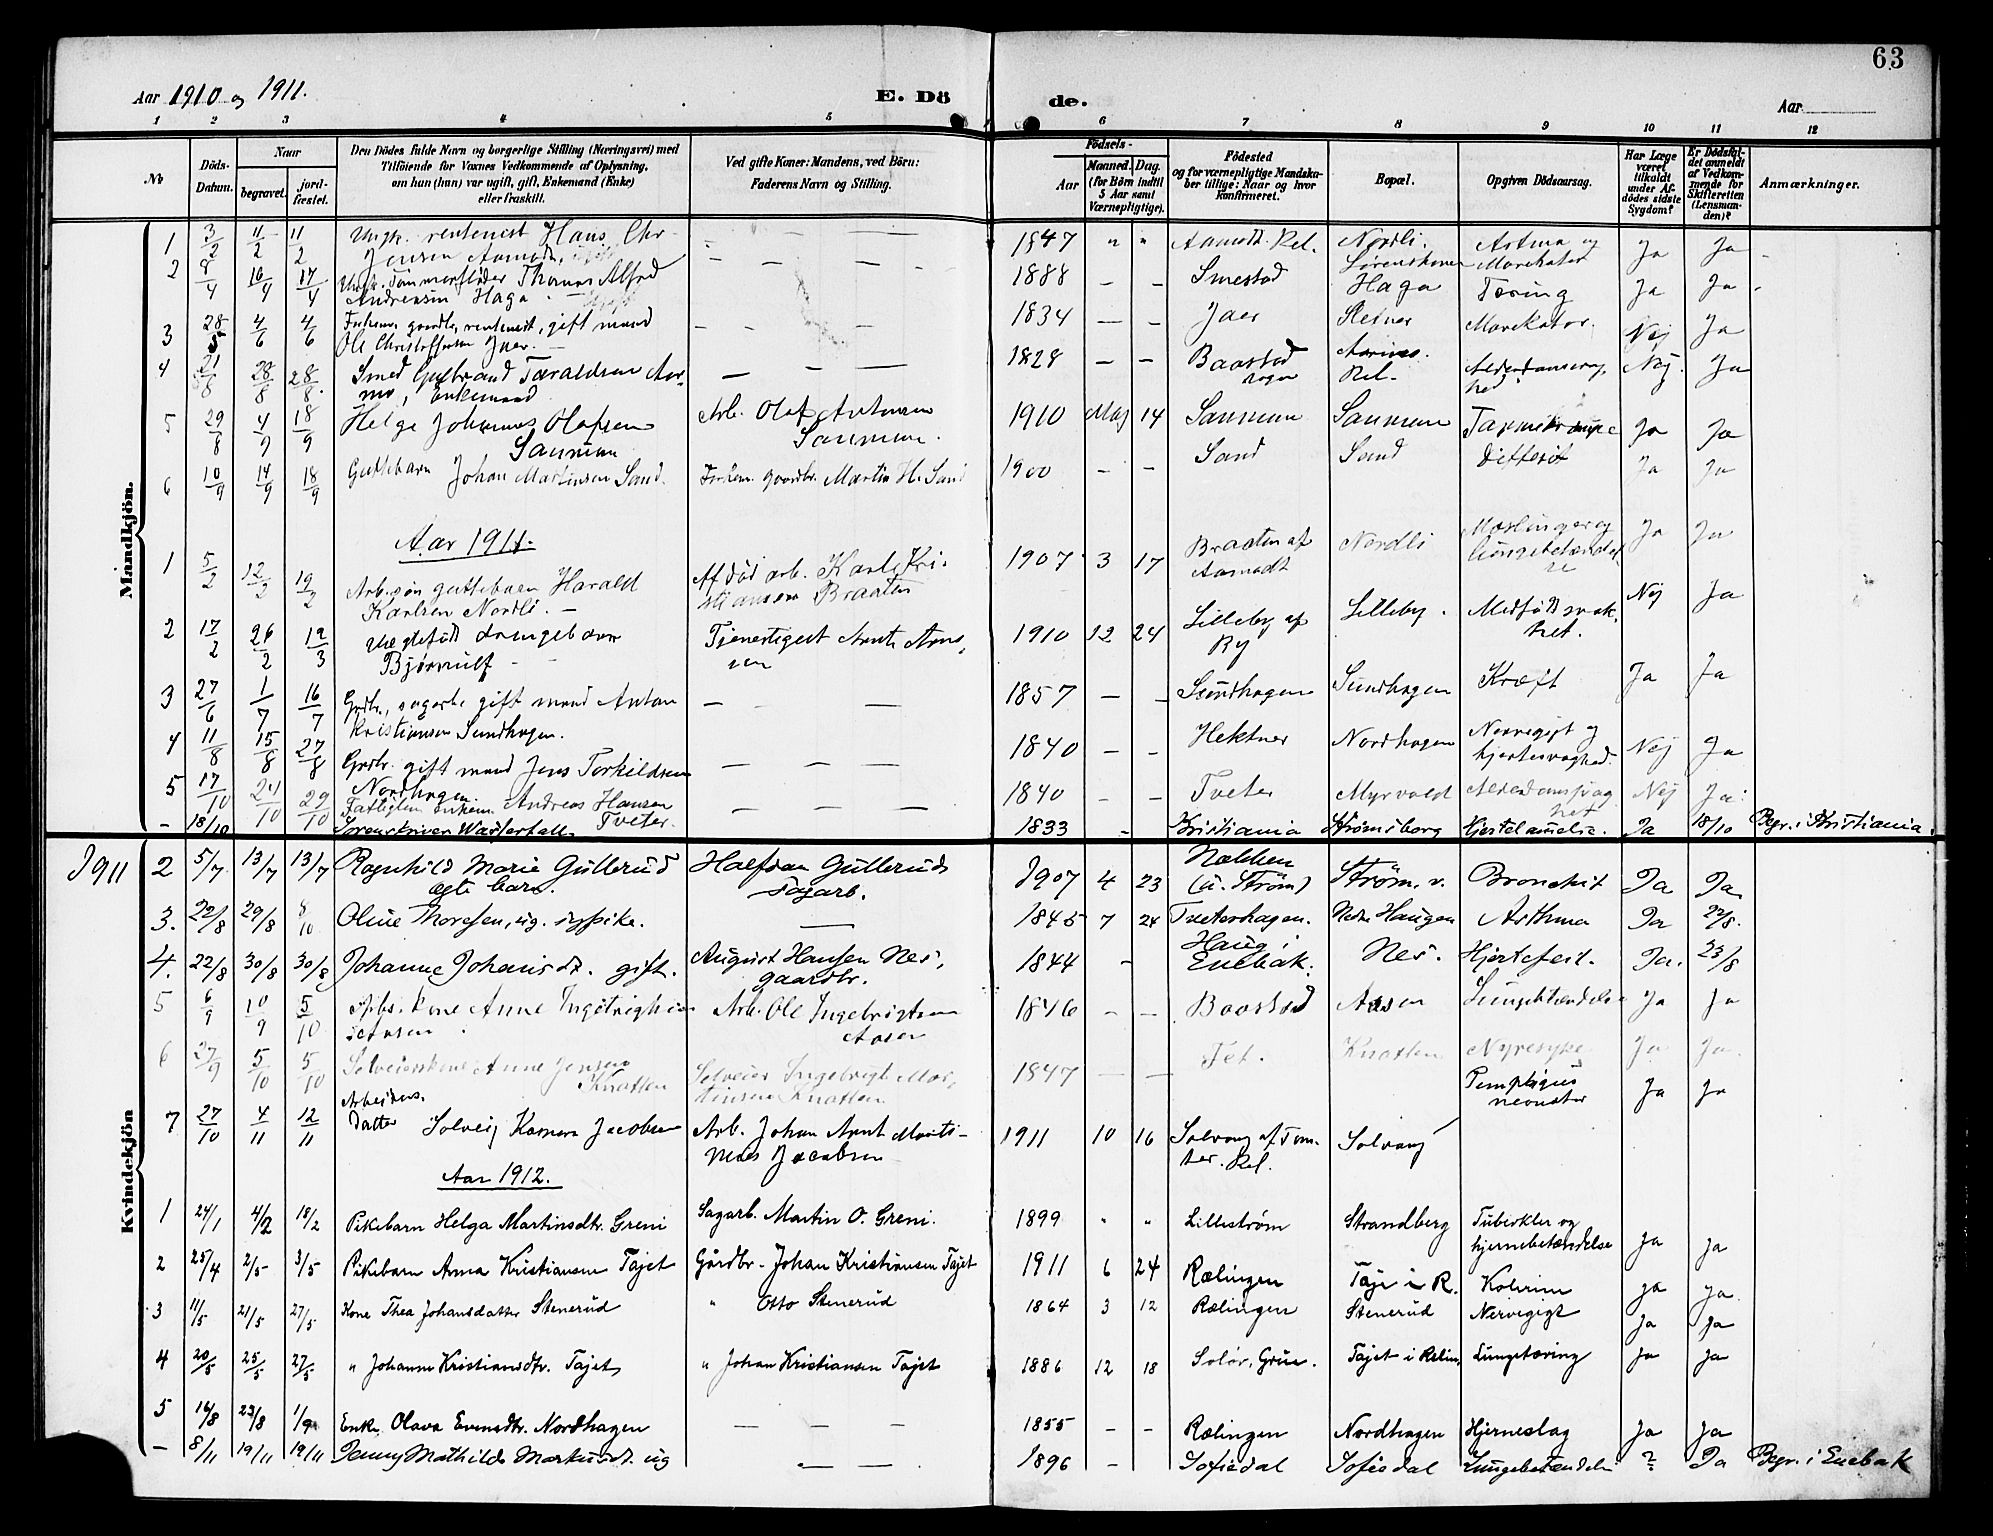 63
Aar 1910 og 1911.
E. Dö
de.
Aar
1 2 3 4 5 6 7 8 9 10 11 12
No
Döds-Datum.
Naar
begravet.
jord-fæstet.
Den Dödes fulde Navn og borgerlige Stilling (Næringsvei) med
Tilföiende for Voxnes Vedkommende af Oplysning,
om hun (han) var ugift, gift, Enkemand (Enke)
eller fraskilt.
Ved gifte Koner: Mandens, ved Börn:
Faderens Navn og Stilling.
Födsels-
Aar
Maaned. Dag.
(for Börn indtil
5 Aar samt
Værnepligtige).
Födested
og for værnepligtige Mandska-
ber tillige: Naar og hvor
konfirmeret.
Bopæl.
Opgiven Dödsaarsag.
Har Læge
været
tilkaldt
under Af-
dödes sidste
Sygdom?
Er Dödsfal-
det anmeldt
af Vedkom-
mende for
Skifteretten
(Lensman-
den)?
Anmærkninger.
Mandkjön.
1 3/2 11/2 11/2 Ungk. rentenist Hans Chr. Jensen Aamodt — — — 1847 " " Aamodt. Rel. Nordli. Astma og Ja Ja
2 8/4 16/4 17/4 Ungk. Tømmerfløder Thomas Alfred Andreassen Haga — — — 1888 — — Smestad Haga Tæring Ja Ja
3 28/5 4/6 4/6 Forhenv. gaardbr., rentenist, gift mand Ole Christoffersen Jaer. — — — 1834 — — Jaer Marekator. Nej Ja
4 21/8 28/8 28/8 Smed Gulbrand Taraldsen Aarnes, Enkemand — — — 1828 — — Baastad sogn Aarnes. Rel. Nej. Ja
5 29/8 4/9 18/9 Helge Johannes Olafsen Sannum Arb. Olaf Antonsen Sannum. 1910 Maj 14 Sannum Sannum Tarmkrampe Ja Ja
6 10/9 14/9 18/9 Guttebarn Johan Martinsen Sand. Forhen. gaardbr. Martin H. Sand 1900 — — Sand Sand Difterit Ja Ja
Aar 1911.
1 5/2 12/2 19/2 Arb. søn guttebarn Harald Karlsen Nordli. — Afdød arb. Karl Kristiansen Braaten 1907 3 17 Braaten af Aamodt Nordli Mæslinger og lungebetændelse Ja Ja
2 17/2 26/2 12/3 uægtefødt drengebarn Bjørnulf Tjenestegut Arnt Arnesen 1910 12 24 Lilleby af Ry Lilleby. Medfødt svakhet. Nej Ja
3 27/6 1/7 16/7 Grdbr., sagarb. gift mand Anton Kristiansen Sundhagen. — — 1857 — — Sundhagen Sundhagen Kræft Ja Ja
4 11/8 15/8 27/8 Grdbr. gift mand Jens Torkildsen Nordhagen — — — 1840 — — Hektner Nordhagen Nervegigt og hjertesvaghed. Nej Ja
5 17/10 24/10 29/10 Fattiglem enkem. Andreas Hansen Tveter. — — — 1840 — — Tveter Myrvold Alderdomssvaghet Nej Ja
— 18/10 Sorenskriver Westerfall. 1833 — Kristiania Strømsborg Hjertelammelse. Ja 18/10 Begr. i Kristiania.
Kvindekjön
1911 2 5/7 13/7 13/7 Ragnhild Marie Gullerud ægte barn. Halfdan Gulleruds sagarb. 1907 4 23 Nækken (u. Strøm) Strøm. v. Bronchit Ja Ja
3. 22/8 29/8 8/10 Oline Thoresen, ug. sypike. — 1845 7 24 Tveterhagen. Nedre Haugen Asthma Ja 22/8.
4. 22/8 30/8 30/8 Johanne Johansdt. gift. August Hansen Nes, gaardbr. 1844 — Haug i Enebak. Nes. Hjertefeil. Ja. 23/8
5 6/9 10/9 5/10 Arbs. kone Anne Ingebrigtsen Aasen Arb. Ole Ingebrigtsen Aasen 1846 — — Baastad Aasen Lungebetændelse Ja Ja
6 27/9 5/10 5/10 Selveierskone Anne Jensen Knatten Selveier Ingebrigt Mortinsen Knatten 1847 — — Fet. Knatten Nyresyke Ja Ja.
7 27/10 4/11 12/11 Arbeiders. Datter Solveig Karen Jacobsen Arb. Johan Arnt Martinius Jacobsen 1911 10 16 Solvang af Tomter. Rel. Solvang Pemphigus neonator Ja Ja
Aar 1912.
1 24/1 4/2 18/2 Pikebarn Helga Martinsdtr. Greni Sagarb. Martin O. Greni. 1899 " " Lillestrøm Strandberg Tuberkler og hjernebetændelse Ja Ja
2 25/4 2/5 3/5 Pikebarn Anna Kristiansen Tajet Gårdbr. Johan Kristiansen Tajet 1911 6 24 Rælingen Taje i R. Kolerine Ja Ja.
3 11/5 21/5 27/5 Kone Thea Johansdatter Stenerud " Otto Stenerud 1864 3 12 Rælingen Stenerud Nervegigt Ja Ja
4 20/5 25/5 27/5 " Johanne Kristiansdtr. Tajet " Johan Kristiansen Tajet 1886 12 18 Solør, Grue. Tajet i Rælin. Lungetæring Ja Ja
5 16/8 23/8 1/9 Enke Olava Evensdtr. Nordhagen — — — 1855 — — Rælingen Nordhagen Hjerneslag Ja Ja
— 8/11 19/11 19/11 Jenny Mathilde Markusdt. ug — — 1896 — Sofiedal Sofiedal Lungebetændelse ? Ja Begr. i Enebak